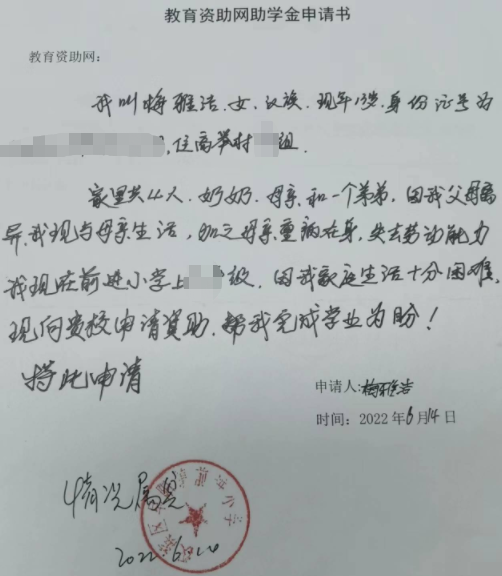 教育资助网助学金申请书
教育资助网：
我叫梅雅洁、女、汉族、现年13岁,身份证号为
,住高举村 组.
家里共四人、奶奶、母亲和一个弟弟,因我父母离
异,我现与母亲生活,加之母亲重病在身,失去劳动能力
我现在前进小学上 级.因我家庭生活十分困难,
现向贵校申请资助.帮我完成学业为盼!
特此申请
申请人:梅雅洁
时间：2022年6月14日
情况属实
2022.6.20